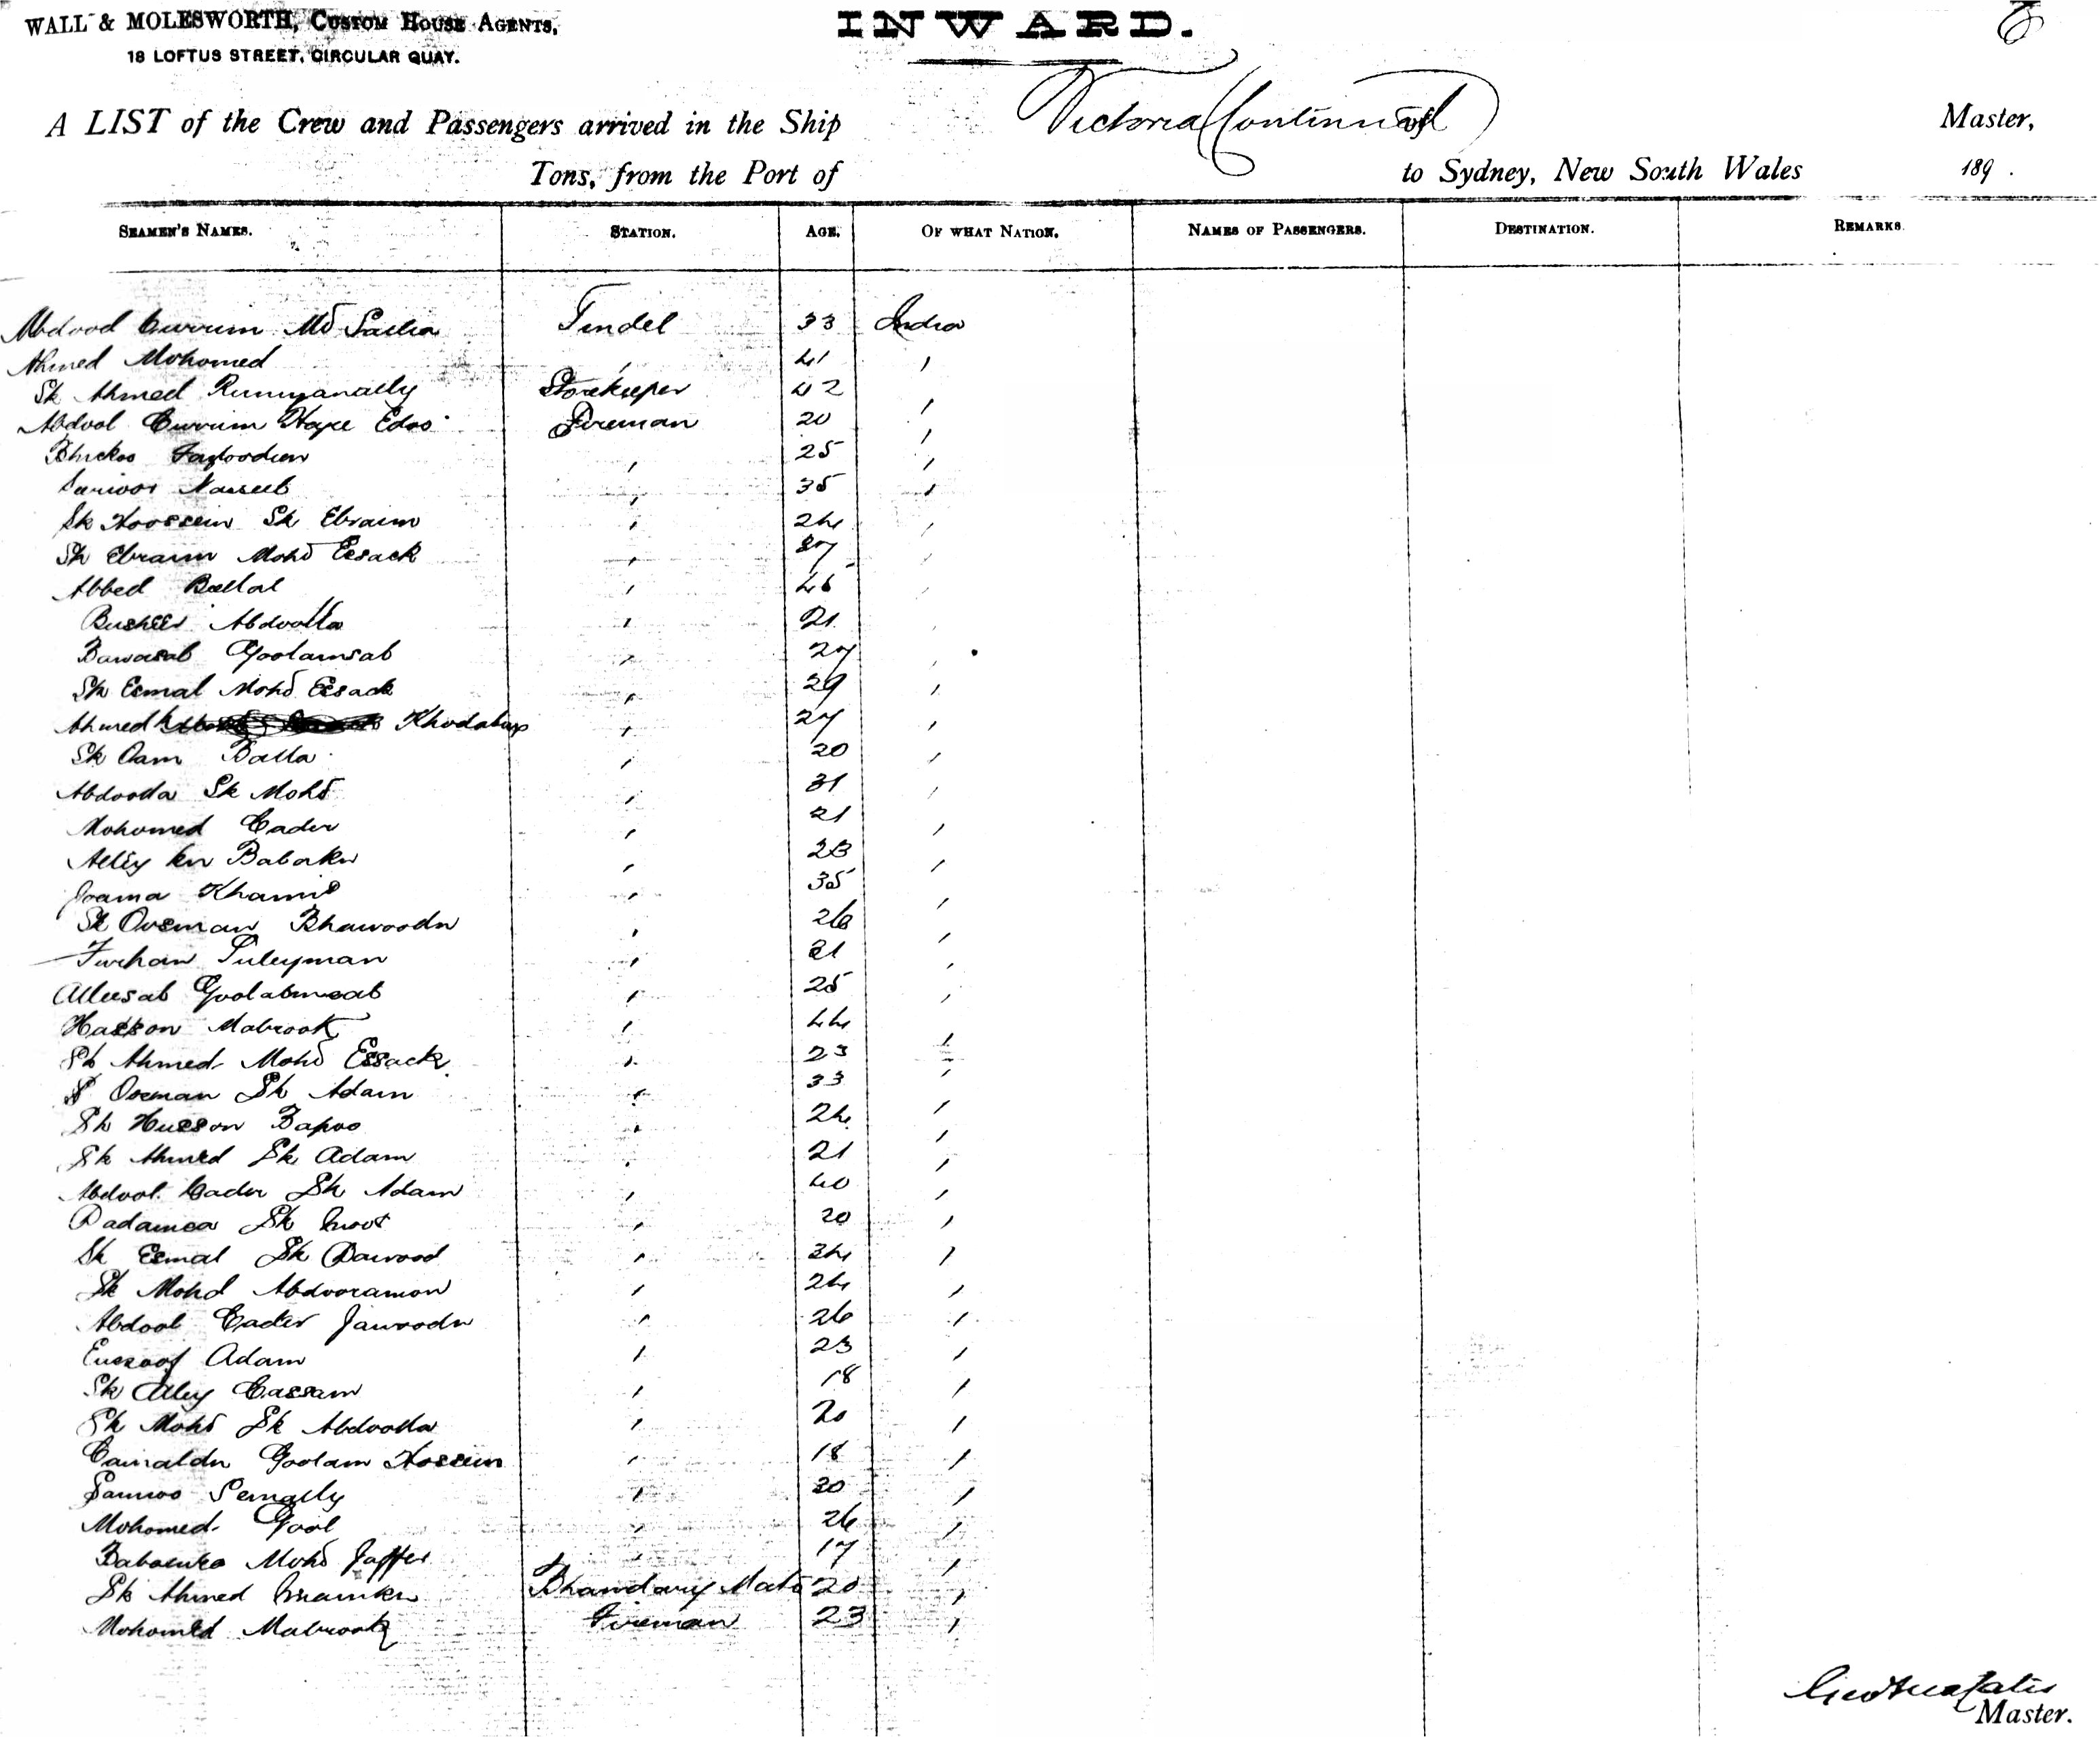 WALL & MOLESWORTH, CUSTOM HOUSE AGENTS,
18 LOFTUS STREET, CIRCULAR QUAY.
INWARD.
A LIST of the Crew and Passengers arrived in the Ship Victoria (Continued) of Master,
Tons, from the Port of to Sydney, New South Wales 189 .
SEAMEN'S NAMES. STATION. AGE. OF WHAT NATION. NAMES OF PASSENGERS. DESTINATION. REMARKS.
Abdool Currim Md 33 Tindel India
Ahmed Mohomed " 41 "
Sk Ahmed Storekeeper 42 "
Abdool Currim Edoo Fireman 20 "
Bhickoo " 25 "
Nasseeb " 35 "
Sk Hoossein Sk Ebraim " 24 "
Sk Ebraim Mohd Essack " 27 "
Abbed Ballal " 45 "
Busheer Abdoolla " 21 "
Bawasab Goolamsab " 27 "
Sk Esmal Mohd Essack " 29 "
Ahmed Khodabux " 27 "
Sk Oam Balla " 20 "
Abdoolla Sk Mohd " 31 "
Mohomed Cader " 21 "
Alliy bn " 23 "
Joama Khamis " 35 "
Sk Oosman Bhawoodn " 26 "
Furhan Suleyman " 21 "
Alleesab " 25 "
Hasson Mabrook " 44 "
Sk Ahmed Mohd Essack " 23 "
S Osman Sk Adam " 33 "
Sk Husson Bapoo " 24 "
Sk Ahmed Sk Adam " 21 "
Abdool Cader Sk Adam " 40 "
Sk " 20 "
Sk Esmal Sk Dawood " 34 "
Sk Mohd Abdooramon " 24 "
Abdool Cader Jawoodn " 26 "
Eussoof Adam " 23 "
Sk Alley Cassam " 18 "
Sk Mohd Sk Abdoolla " 20 "
Camaldn Goolam Hossein " 18 "
" 20 "
Mohomed Gool " 26 "
Mohd Jaffer " 17 "
Sk Ahmed Bhandary Mate 20 "
Mohomed Mabrook Fireman 23 "
Master.